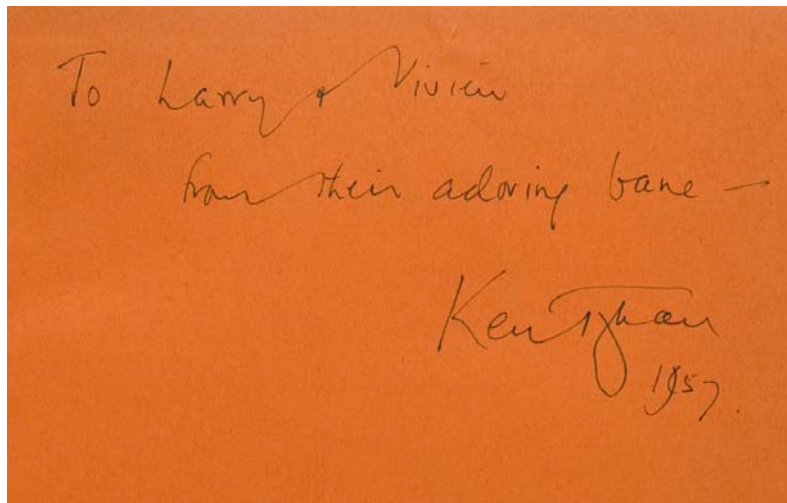 To Larry & Vivien
from their adoring bane —
Ken Tynan
1957.